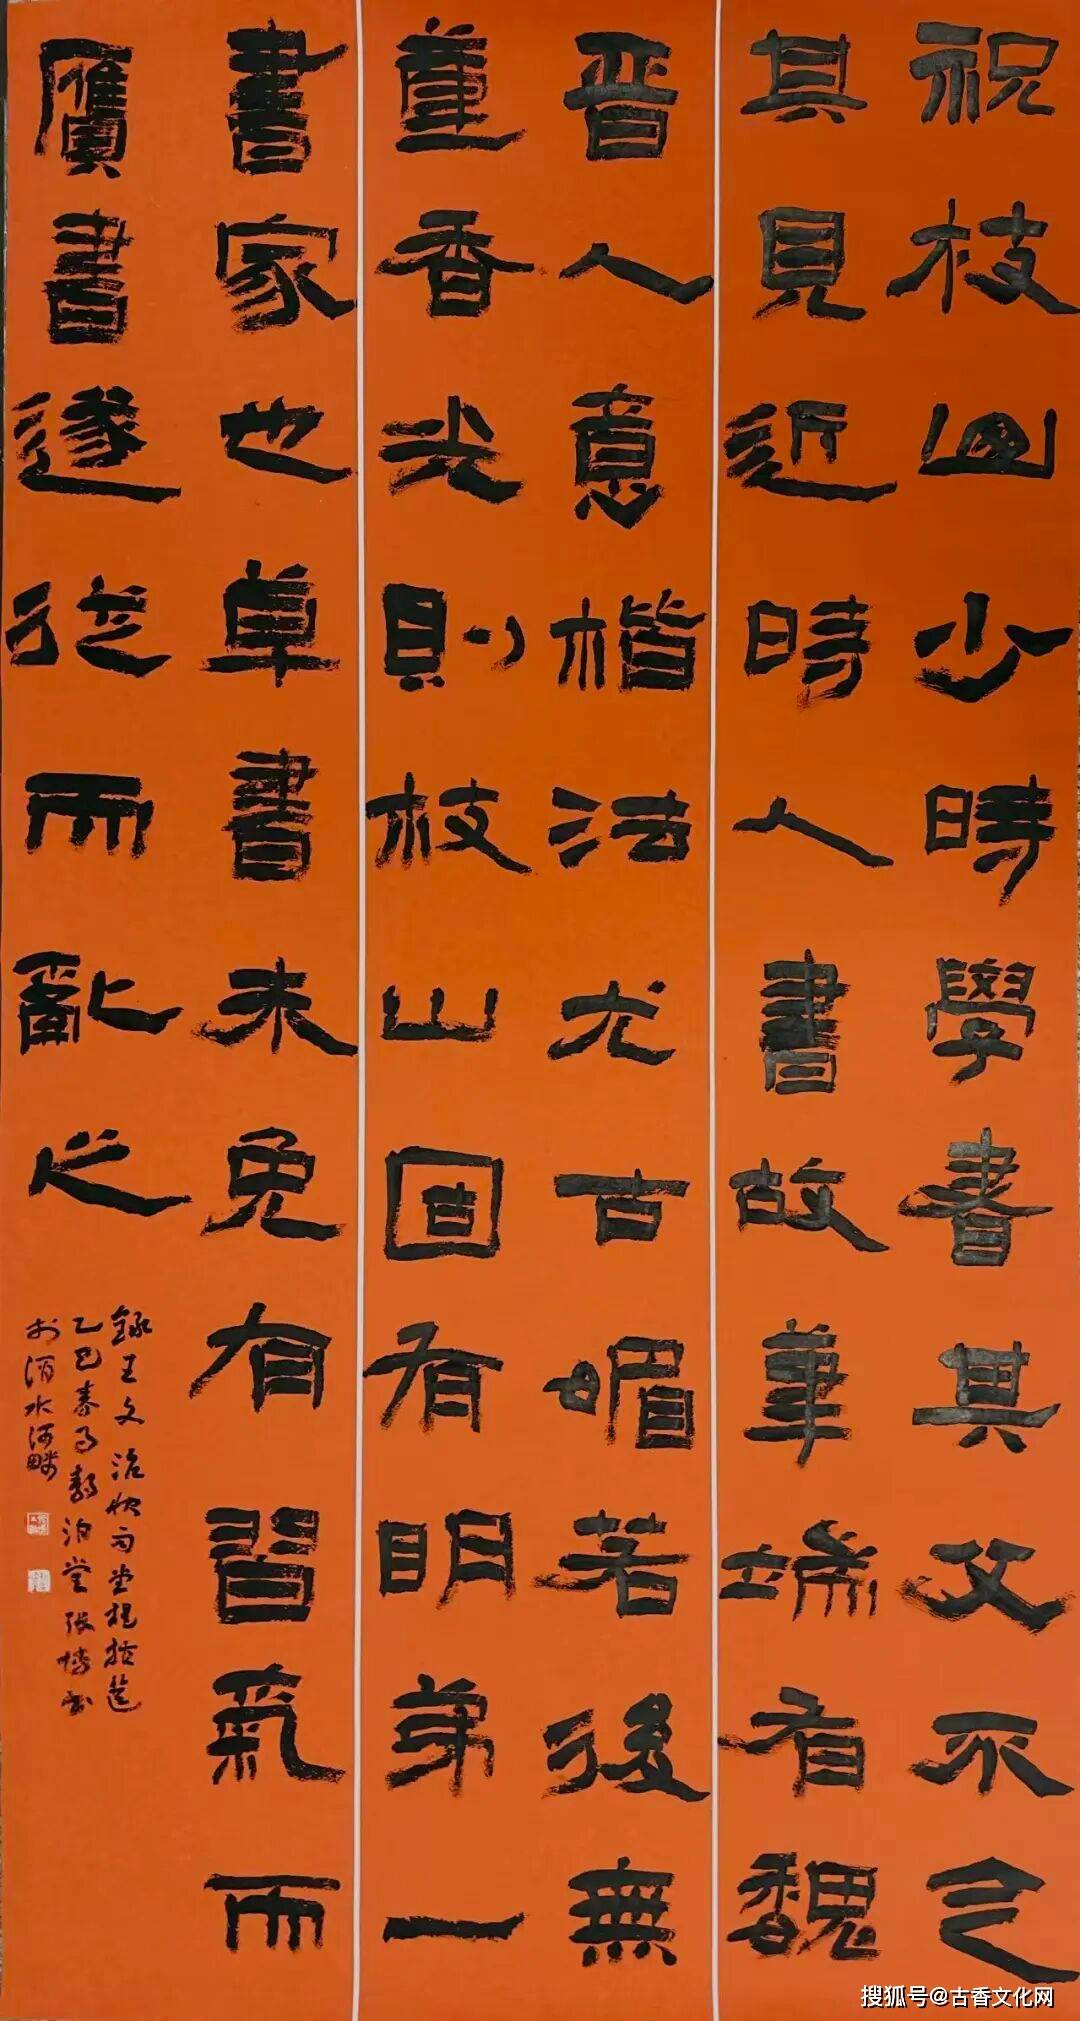 祝枝山少時學書其父不令
其見近時人書故筆端有魏
晋人意楷法尤古媚若後無
董香光則枝山固有明弟一
書家也草書未免有習氣而
贋書遂從而亂之
錄王文治快雨堂
乙巳春 泊堂張博書
於 水河畔
搜狐号@古香文化网